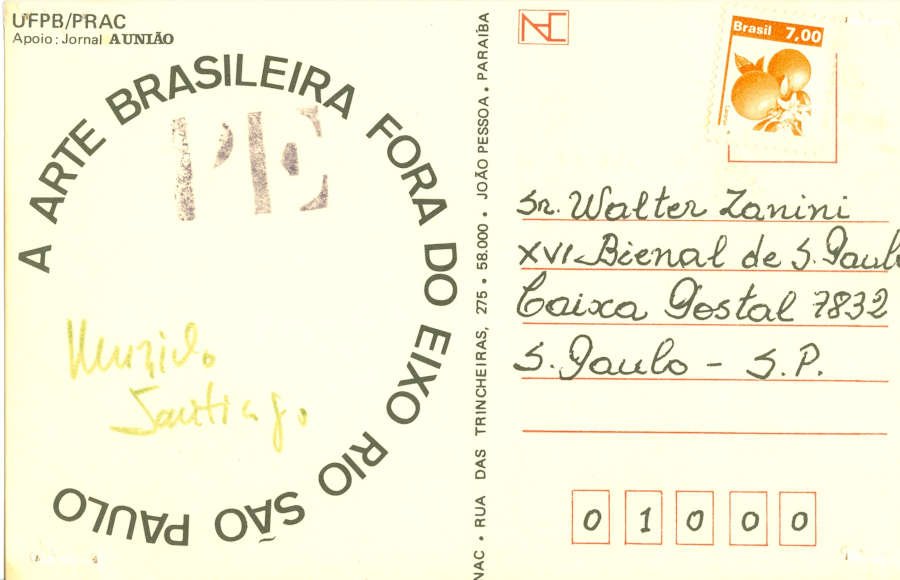 UFPB/PRAC
Apoio: Jornal A UNIÃO
A ARTE BRASILEIRA FORA DO EIXO RIO SÃO PAULO
PE
Santiago
NAC • RUA DAS TRINCHEIRAS, 275 • 58.000 • JOÃO PESSOA • PARAÍBA
NAC
Brasil 7,00
Sr. Walter Zanini
XVI Bienal de S. Paulo
Caixa Postal 7832
S. Paulo - S.P.
01000